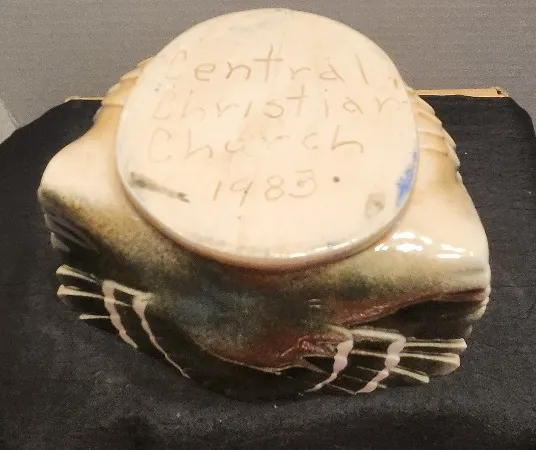 Central
Christian
Church
1983